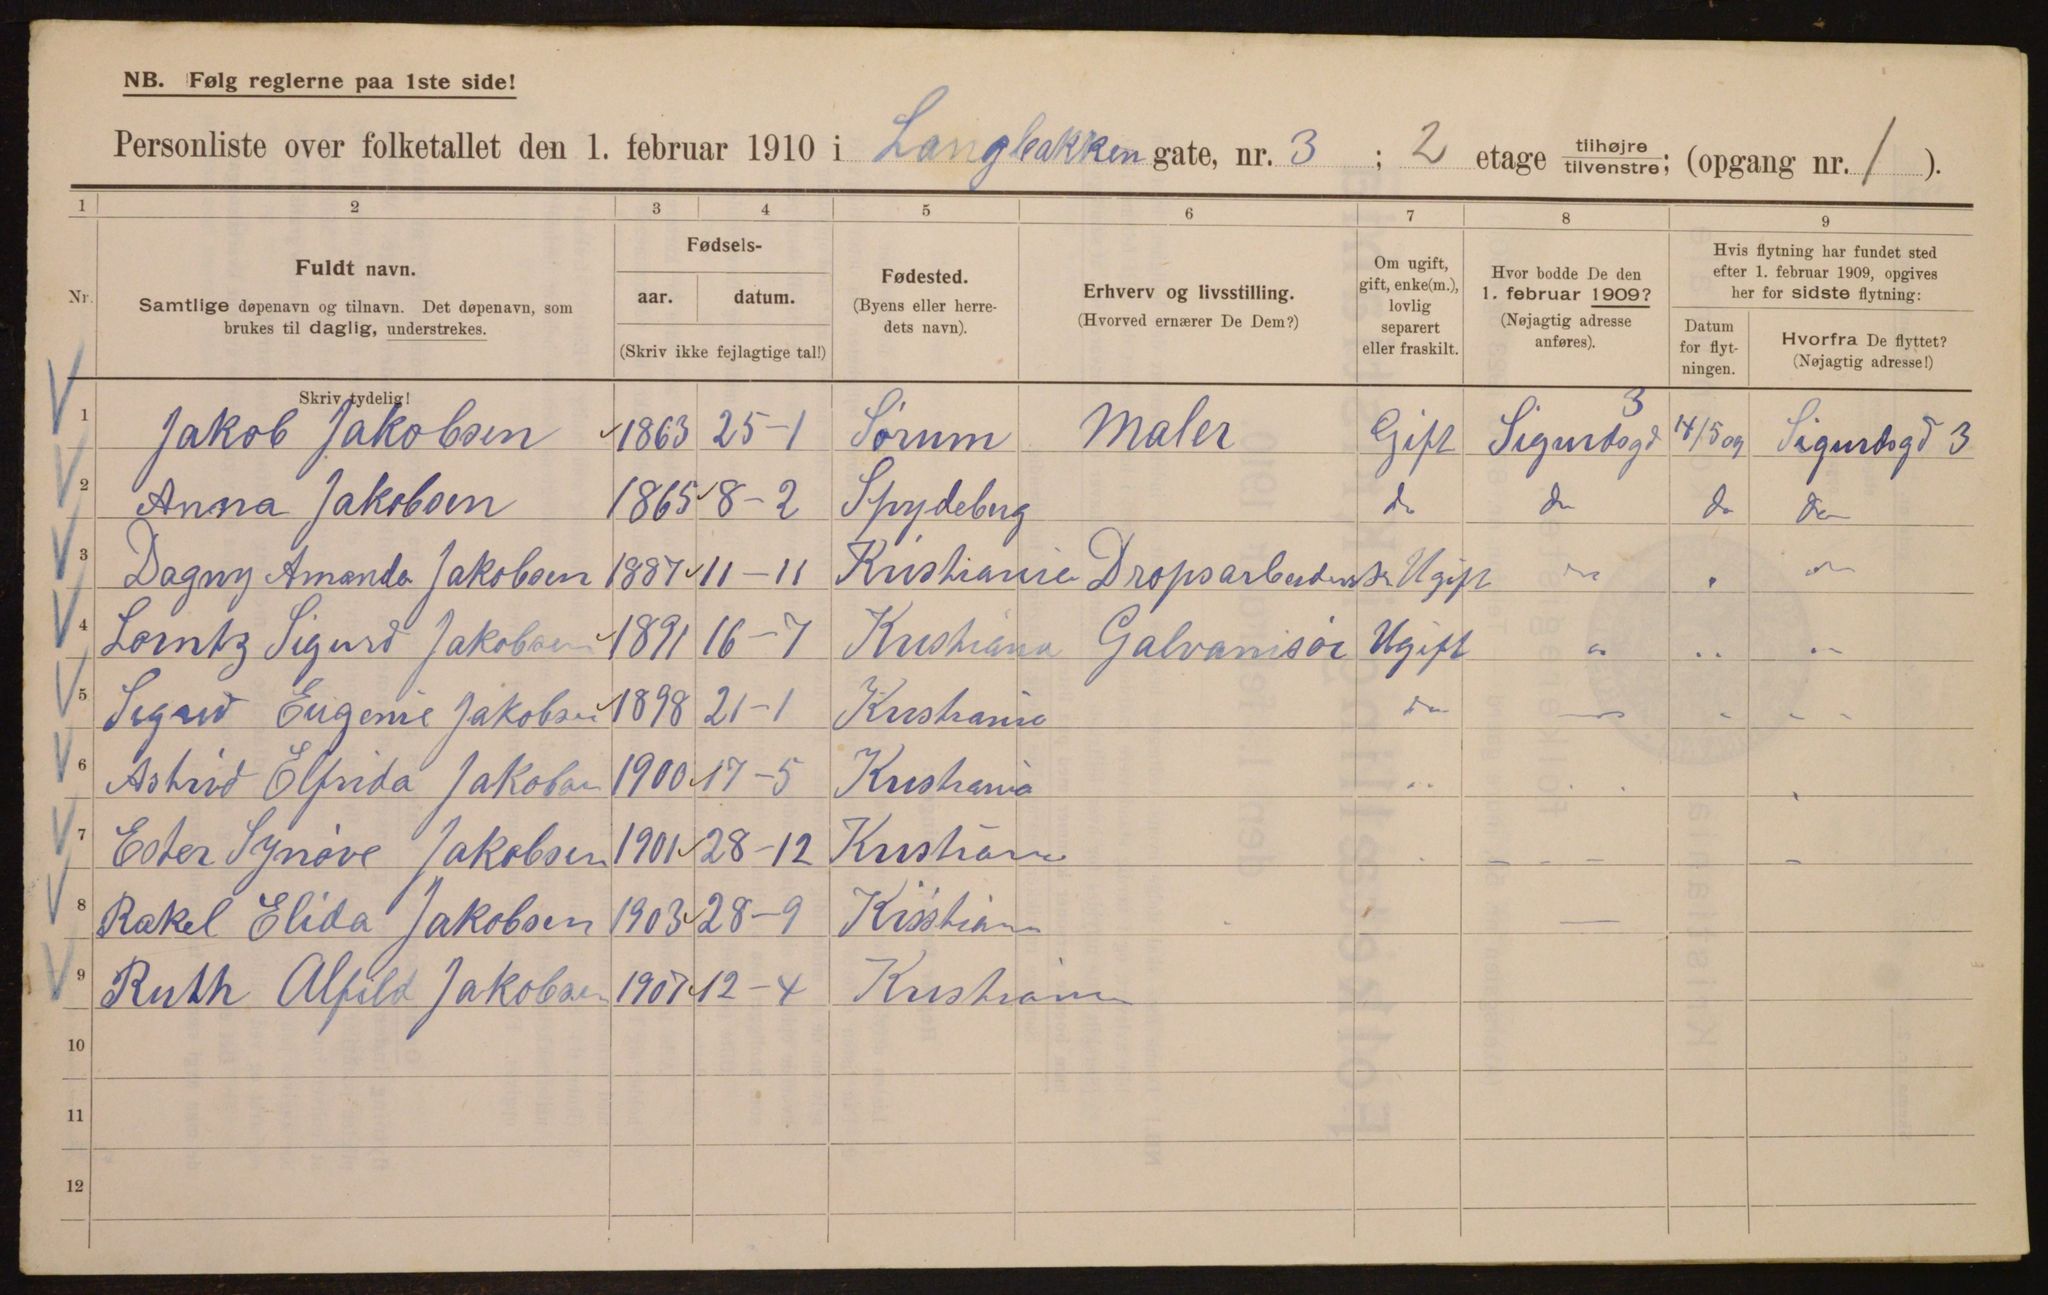 NB. Følg reglerne paa 1ste side!
Personliste over folketallet den 1. februar 1910 i Langbakken gate, nr. 3 ; 2 etage tilhøjre/tilvenstre; (opgang nr. 1 ).
1 2 3 4 5 6 7 8 9
Nr.
Fuldt navn.
Samtlige døpenavn og tilnavn. Det døpenavn, som
brukes til daglig, understrekes.
Skriv tydelig!
Fødsels-
aar. datum.
(Skriv ikke fejlagtige tal!)
Fødested.
(Byens eller herre-
dets navn).
Erhverv og livsstilling.
(Hvorved ernærer De Dem?)
Om ugift,
gift, enke(m.),
lovlig
separert
eller fraskilt.
Hvor bodde De den
1. februar 1909?
(Nøjagtig adresse
anføres).
Hvis flytning har fundet sted
efter 1. februar 1909, opgives
her for sidste flytning:
Datum
for flyt-
ningen.
Hvorfra De flyttet?
(Nøjagtig adresse!)
1 Jakob Jakobsen 1863 25-1 Sørum Maler Gift Sigurdsgd 3 14/5 09 Sigurdsgd 3
2 Anna Jakobsen 1865 8-2 Spydeberg do do do do
3 Dagny Amanda Jakobsen 1887 11-11 Kristiania Dropsarbeiderske Ugift
4 Lorntz Sigurd Jakobsen 1891 16-7 Kristiania Galvanisør Ugift
5 Sigrid Eugenie Jakobsen 1898 21-1 Kristiania do
6 Astrid Elfrida Jakobsen 1900 17-5 Kristiania
7 Ester Synøve Jakobsen 1901 28-12 Kristiania
8 Rakel Elida Jakobsen 1903 28-9 Kristiania
9 Ruth Alfild Jakobsen 1907 12-4 Kristiania
10
11
12